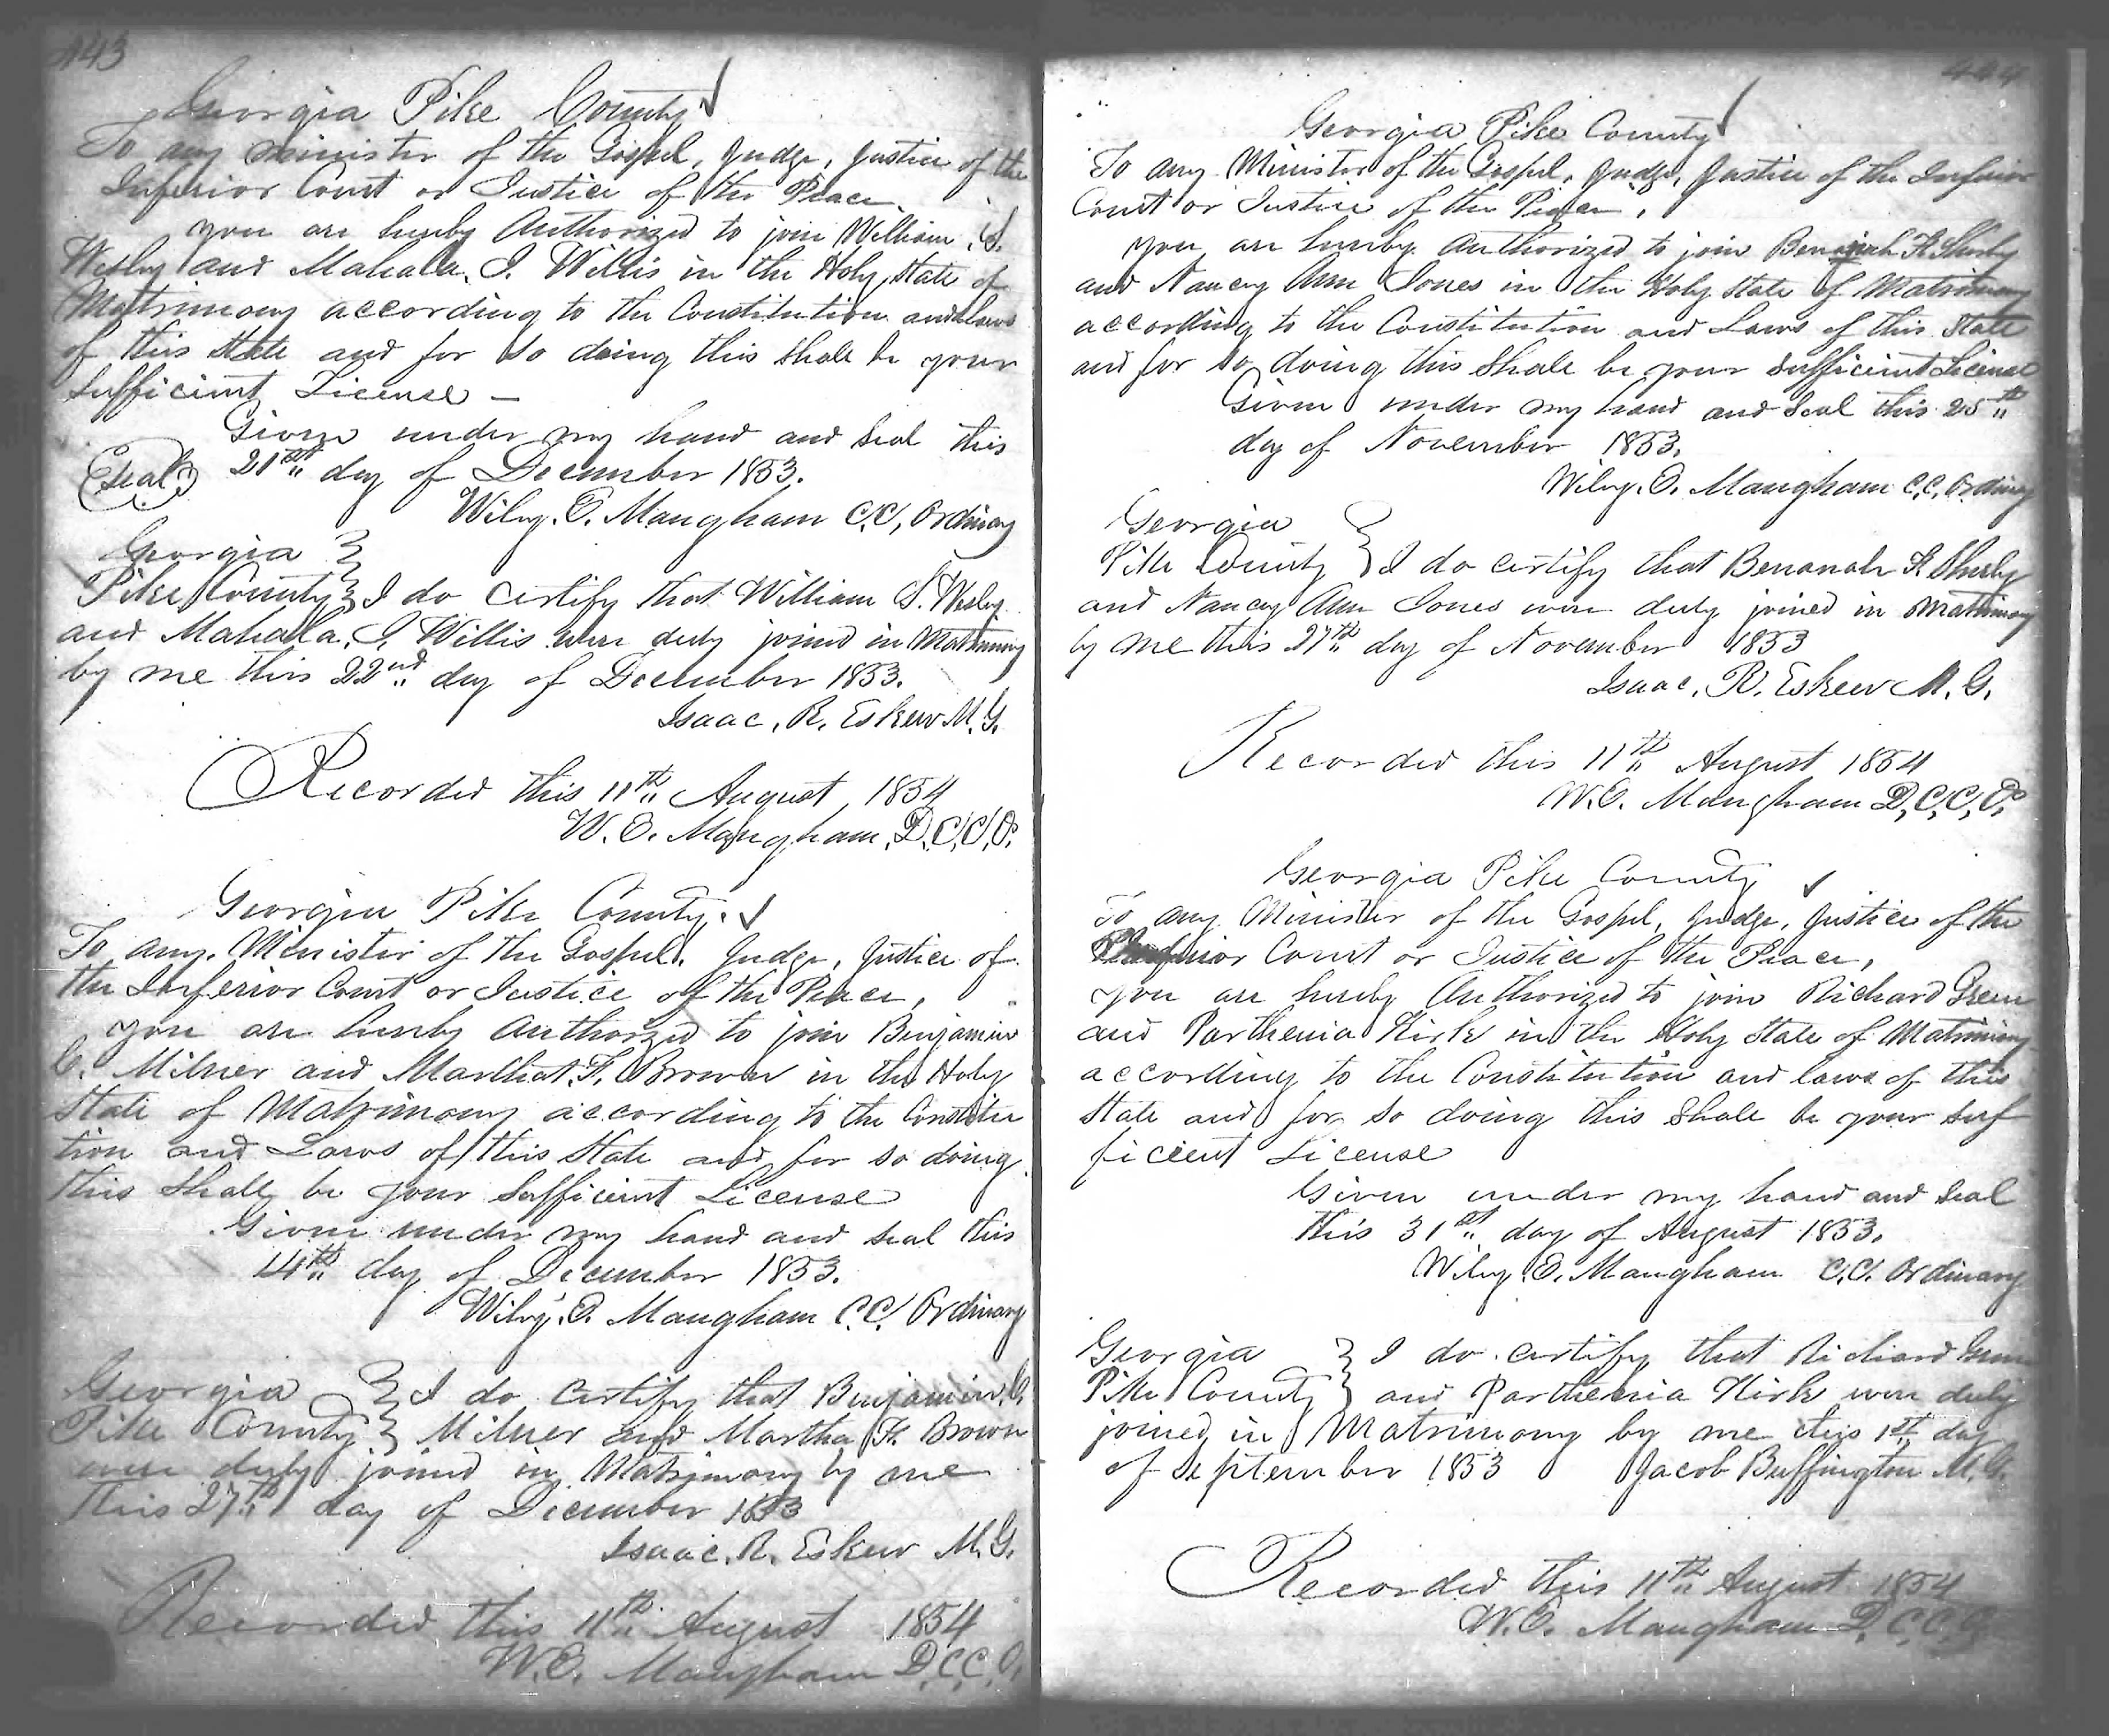 443
Georgia Pike County
To any minister of the Gospel, Judge, Justice of the
Inferior Court or Justice of the Peace
you are hereby Authorized to join William S.
Wesley and Mahala. J. Willis in the Holy State of
Matrimony according to the Constitution and laws
of this State and for so doing this shall be your
sufficient License —
Given under my hand and seal this
Seal 21st day of December 1853.
Wiley. E. Mangham C.C, Ordinary
Georgia
Pike County I do certify that William S. Wesley
and Mahala, J, Willis were duly joined in Matrimony
by me this 22nd day of December 1853.
Isaac, R. Eskew M.G.
Recorded this 11th August, 1854
W. E. Mangham, D.C.C.O.
Georgia Pike County.
To any. Minister of the Gospel. Judge, Justice of
the Inferior Court or Justice of the Peace,
you are hereby Authorized to join Benjamin
C. Milner and Martha F. Brown in the Holy
State of Matrimony according to the Constitu
tion and Laws of this State and for so doing
this shall be your Sufficient License
Given under my hand and seal this
14th day of December 1853.
Wiley. E. Mangham C.C. Ordinary
Georgia I do certify that Benjamin C.
Pike County Milner and Martha F. Brown
were duly joined in Matrimony by me
this 27th day of December 1853
Isaac. R. Eskew M.G.
Recorded this 11th August 1854
W. E. Mangham D.C.C.O.
444
Georgia Pike County
To any Minister of the Gospel, Judge, Justice of the Inferior
Court or Justice of the Peace,
you are hereby Authorized to join F.
and Nancy Ann Jones in the Holy State of Matrimony
according to the Constitution and Laws of this State
and for so doing this Shall be your sufficient License
Given under my hand and Seal this 25th
day of November 1853.
Wiley. E. Mangham C.C. Ordinary
Georgia
Pike County I do certify that Benanah F.
and Nancy Ann Jones were duly joined in Matrimony
by me this 27th day of November 1853
Isaac, R. Eskew M. G.
Recorded this 11th August 1854
W. E. Mangham D,C,C,O,
Georgia Pike County
To any Minister of the Gospel, Judge, Justice of the
Inferior Court or Justice of the Peace,
you are hereby Authorized to join Richard Green
and Parthenia Kirk in the Holy State of Matrimony
according to the Constitution and laws of this
State and for so doing this Shall be your suf
ficient License
Given under my hand and seal
this 31st day of August 1853.
Wiley. E. Mangham C.C. Ordinary
Georgia I do certify that Richard Green
Pike County and Parthenia Kirk were duly
joined in Matrimony by me this 1st day
of September 1853 Jacob Buffington M.G.
Recorded this 11th August 1854
W. E. Mangham D.C.C.O.